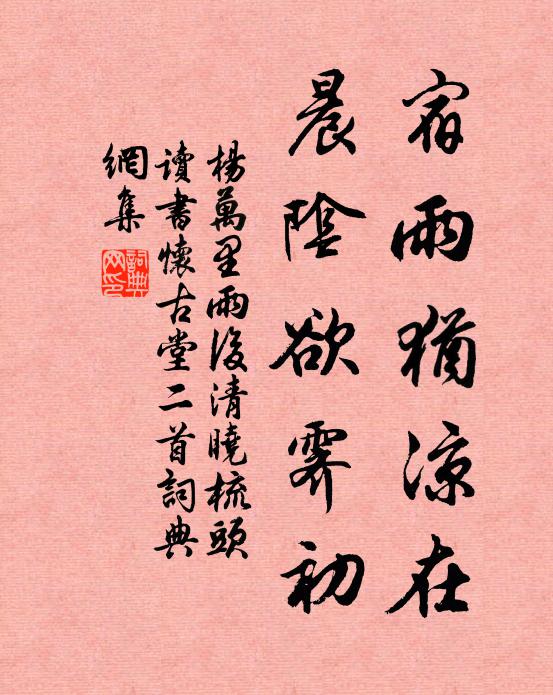 宿雨猶涼在
晨陰欲霽初
楊萬里雨後清曉梳頭
讀書懷古堂二首詞典
網集
詞典
网印